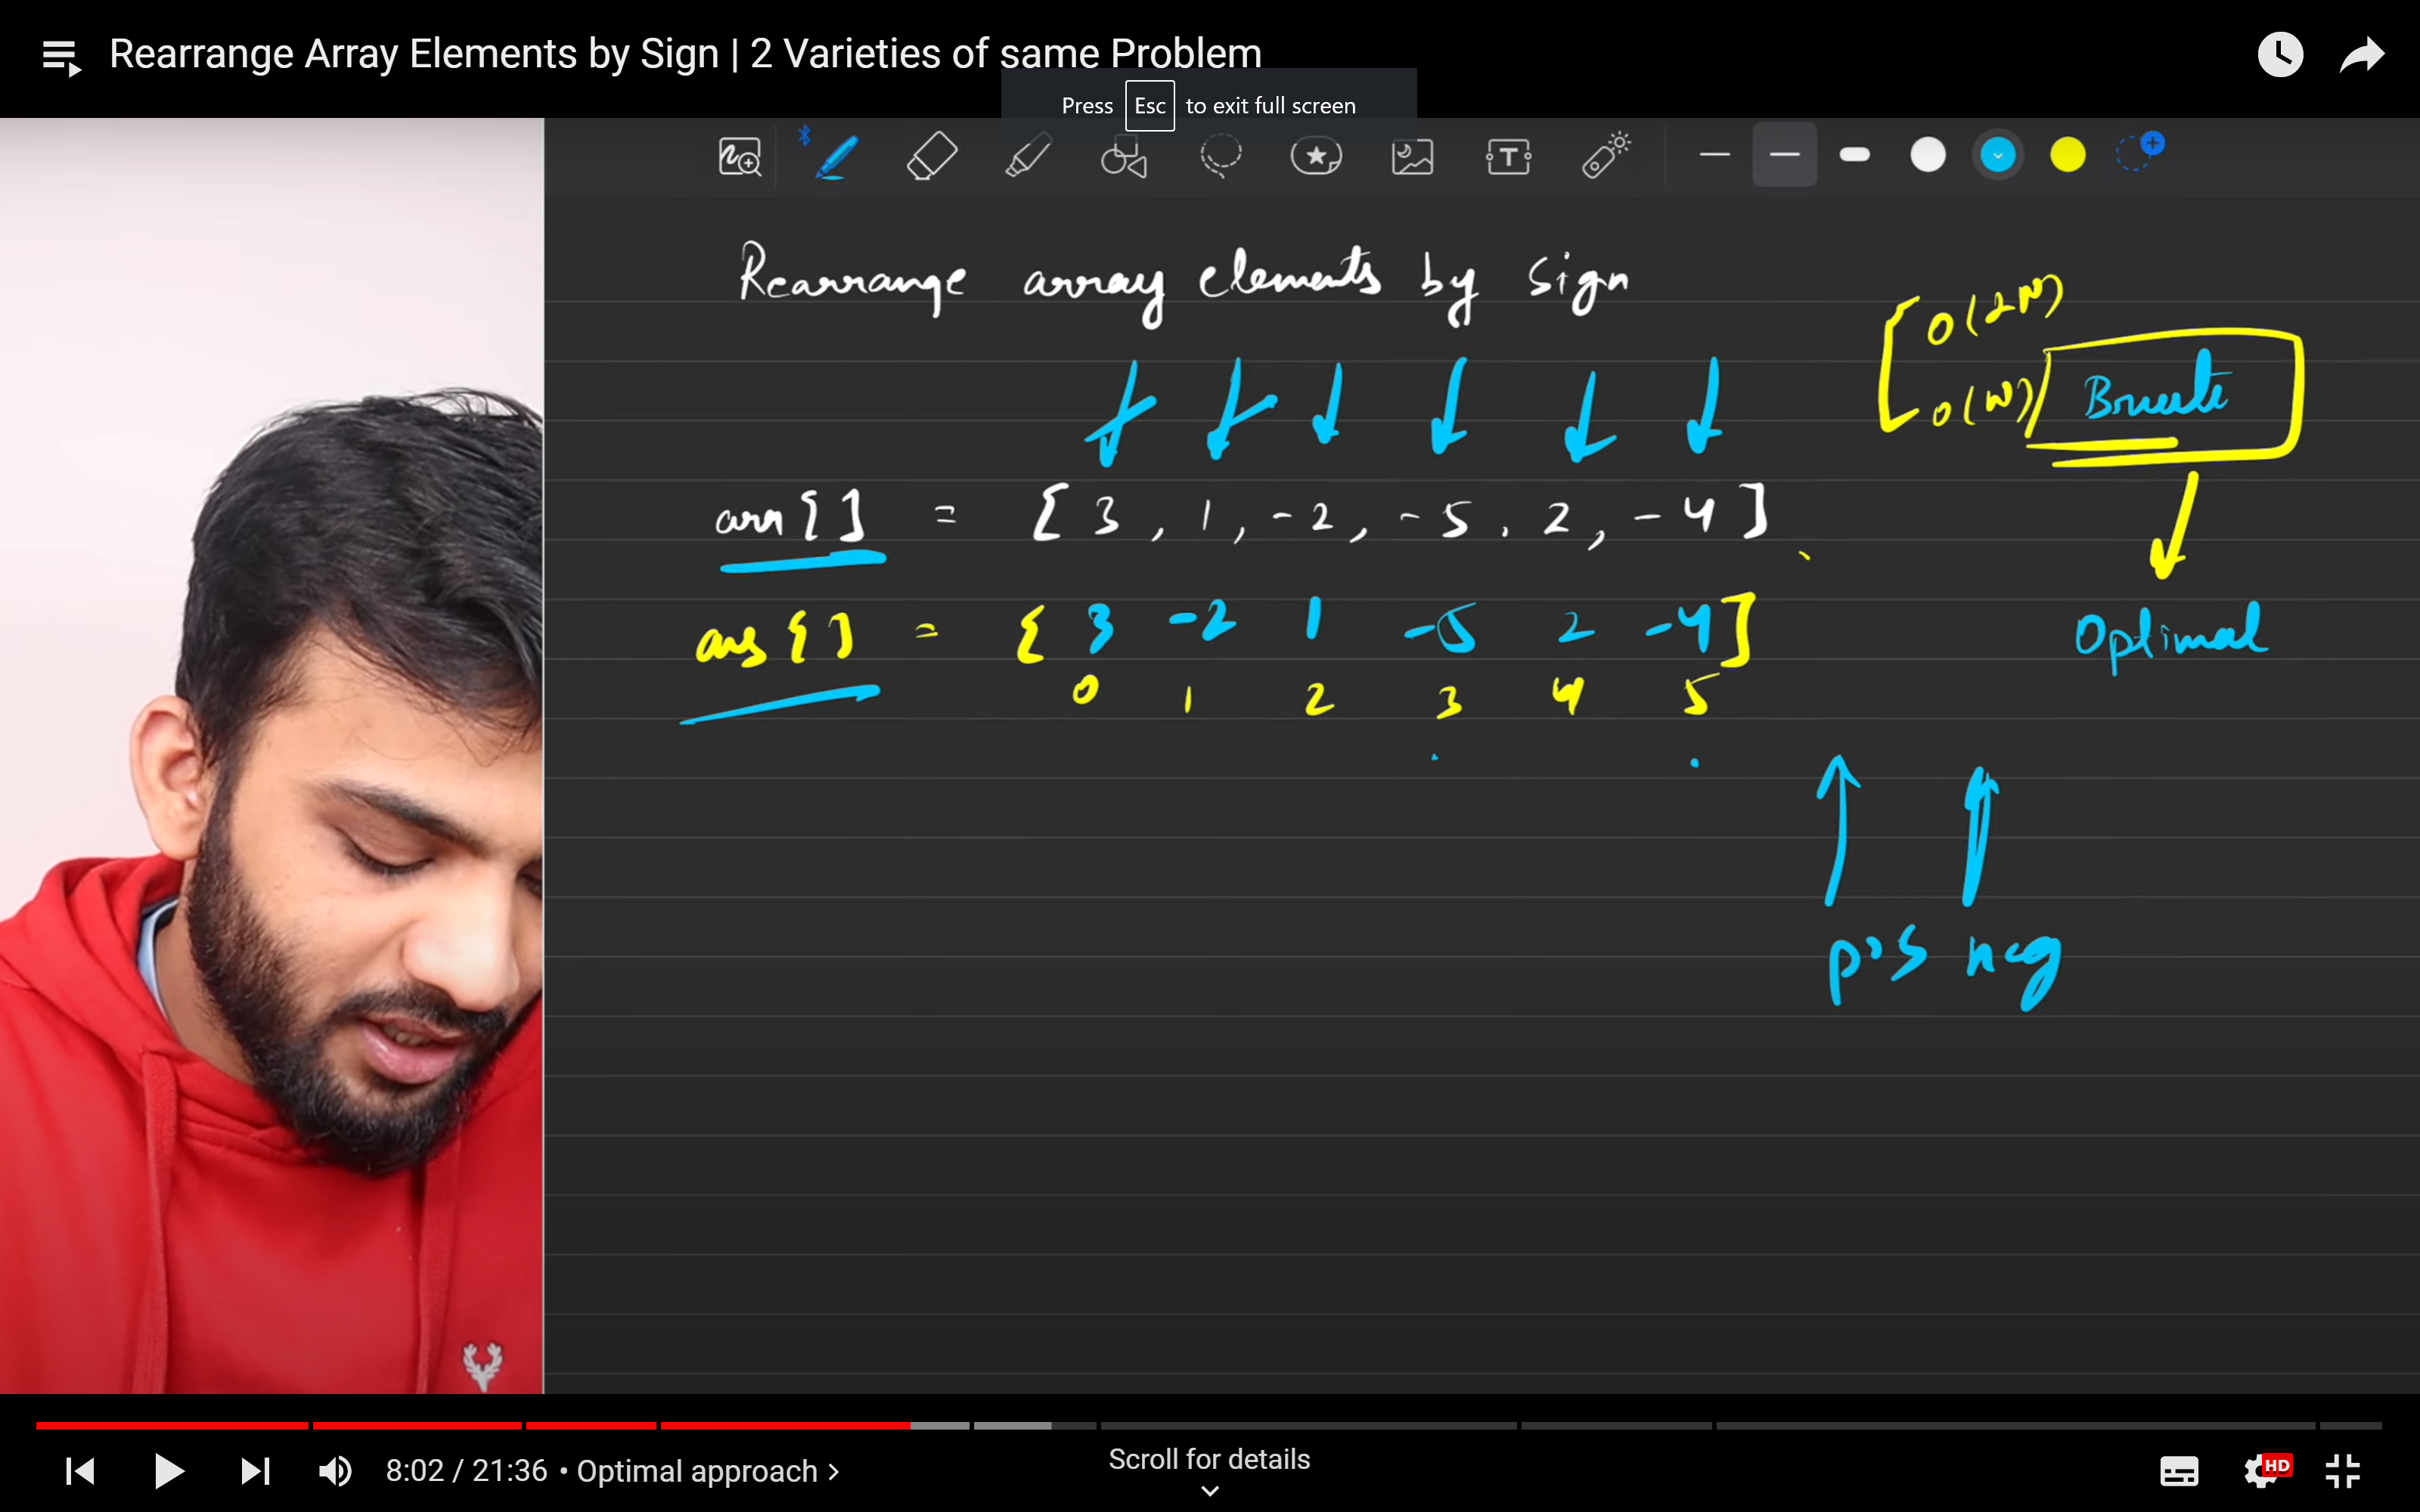 Rearrange Array Elements by Sign | 2 Varieties of same Problem
Press Esc to exit full screen
T
Rearrange array elements by Sign
O(2N)
O(N)
Bruute
arr[] = [3, 1, -2, -5, 2, -4]
ans[] = [3 -2 1 -5 2 -4]
0 1 2 3 4 5
Optimal
pos neg
8:02 / 21:36 • Optimal approach >
Scroll for details
HD